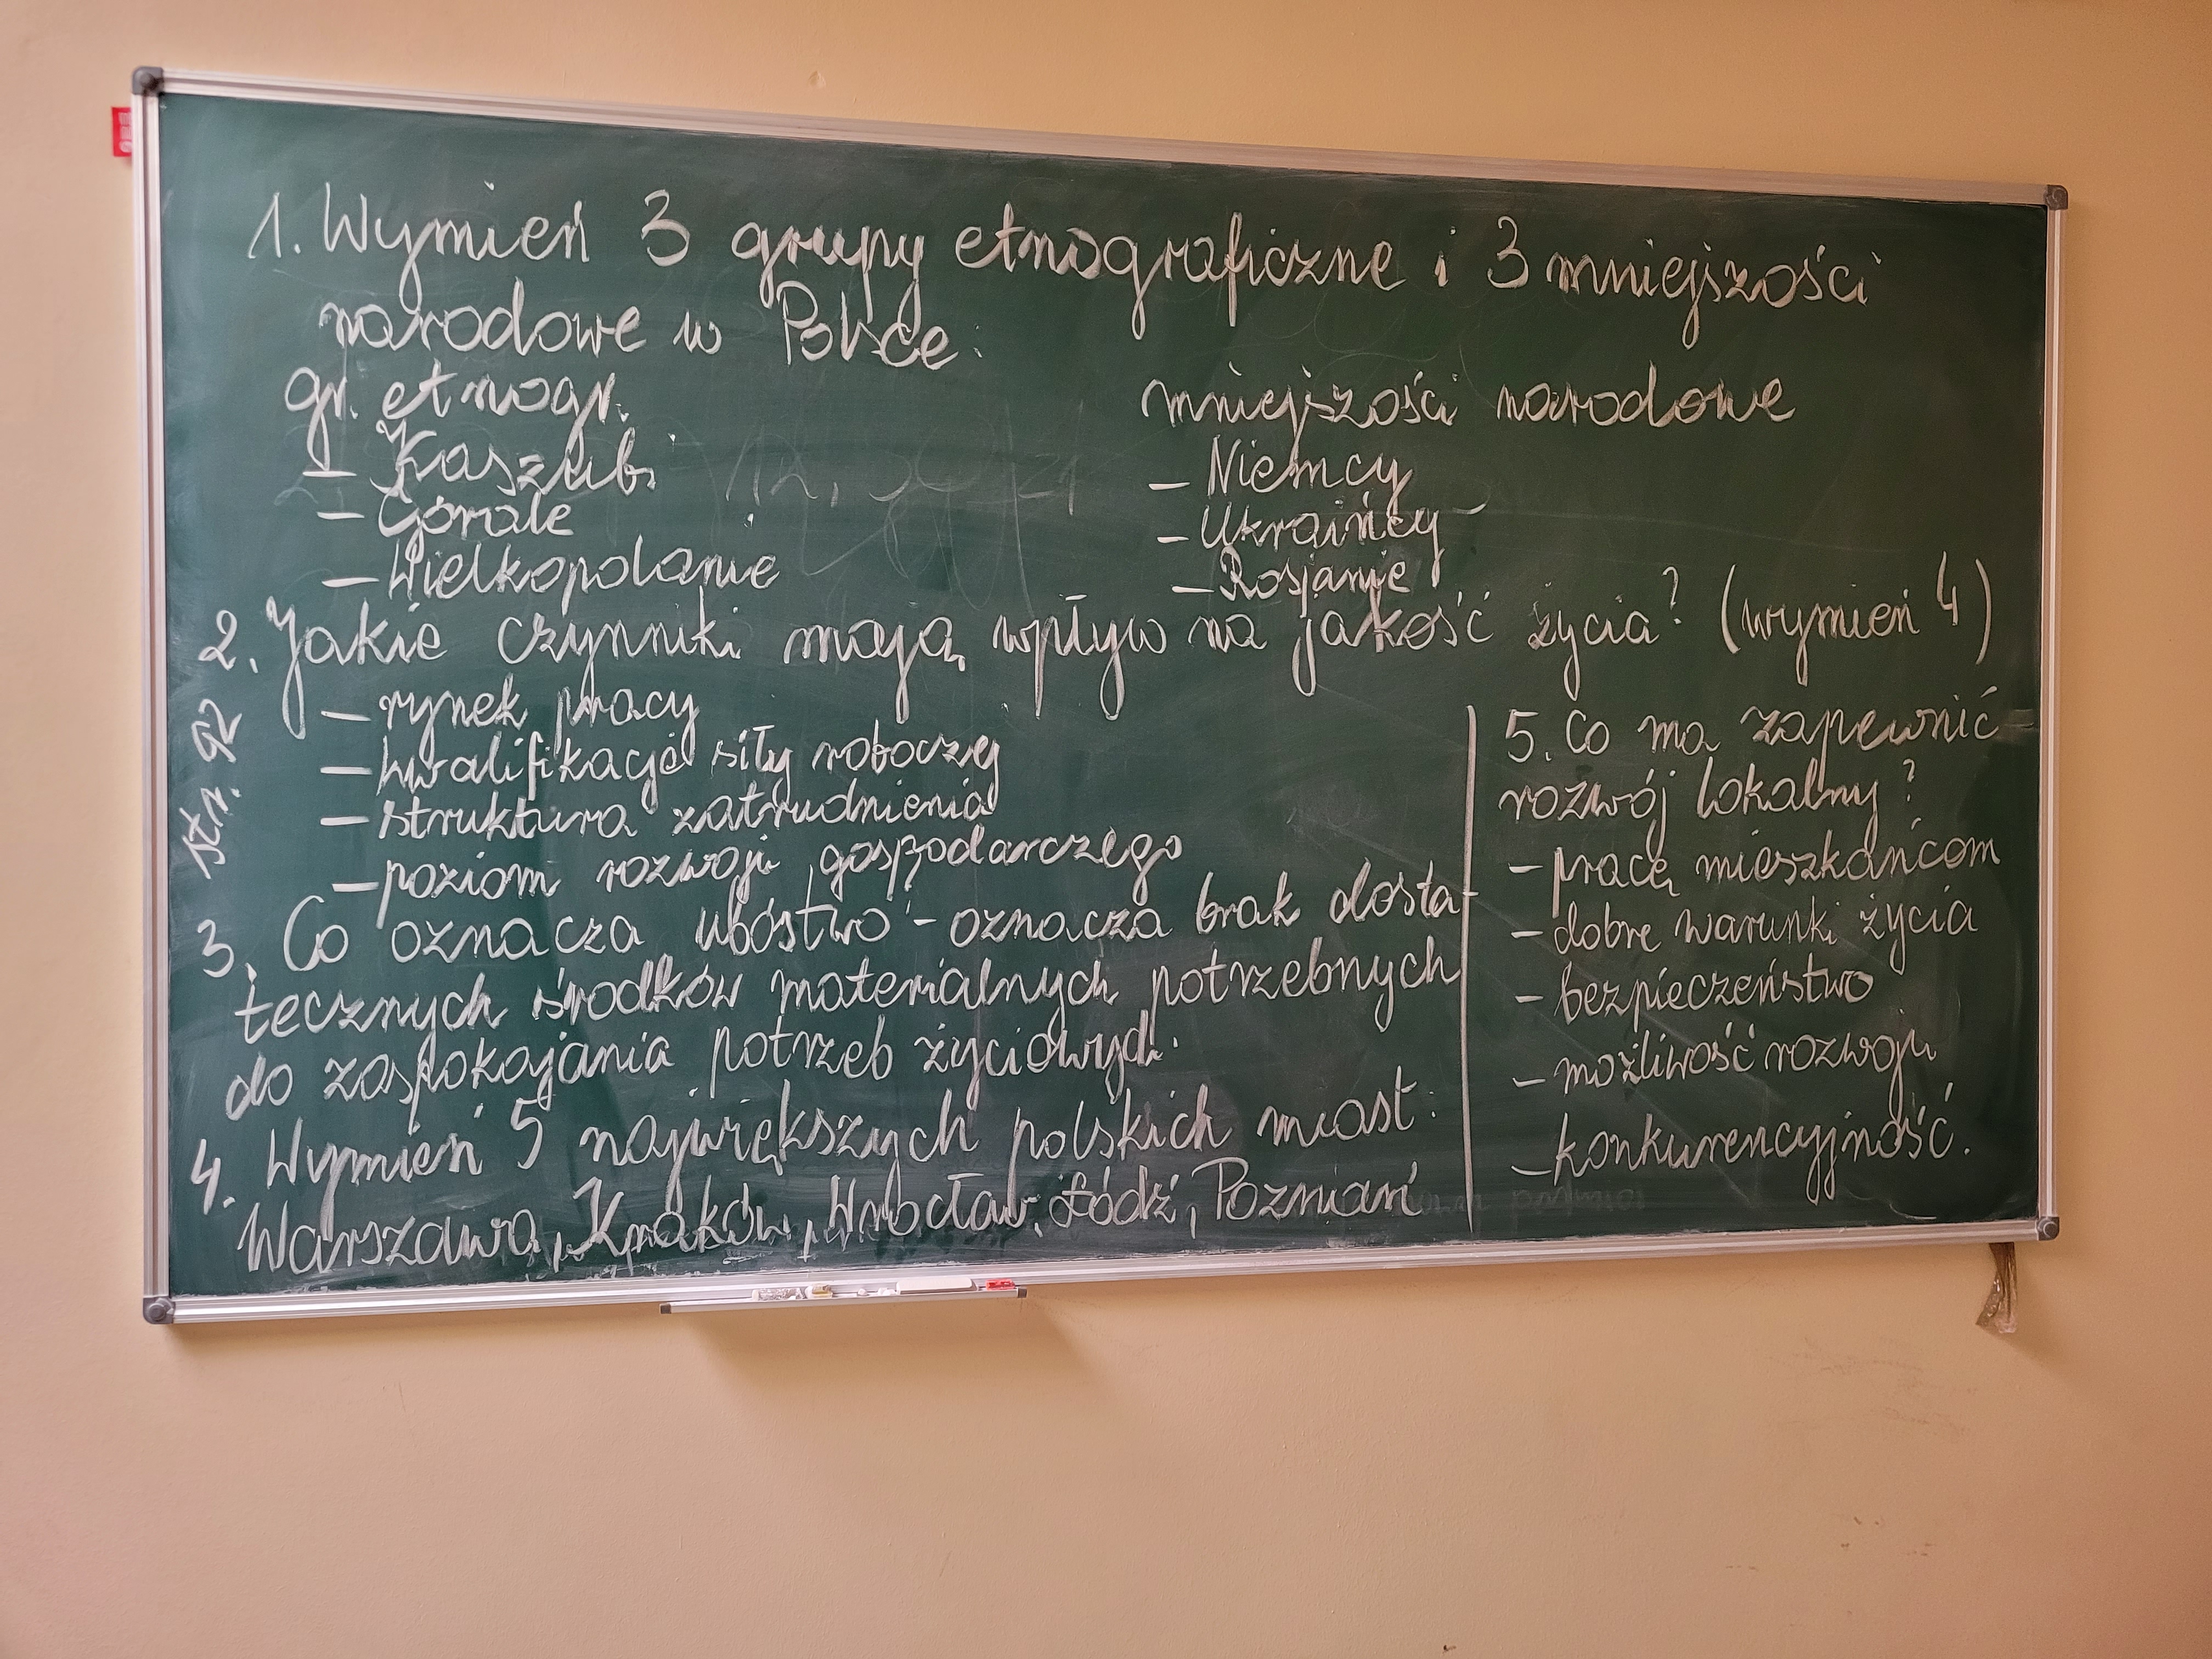 1. Wymień 3 grupy etnograficzne i 3 mniejszości
narodowe w Polsce:
gr. etnogr.
– Kaszubi
– Górale
– Wielkopolanie
mniejszości narodowe
– Niemcy
– Ukraińcy
– Rosjanie
2. Jakie czynniki mają wpływ na jakość życia? (wymień 4)
str. 92
– rynek pracy
– kwalifikacje siły roboczej
– struktura zatrudnienia
– poziom rozwoju gospodarczego
3. Co oznacza ubóstwo? – oznacza brak dosta-
tecznych środków materialnych potrzebnych
do zaspokajania potrzeb życiowych.
4. Wymień 5 największych polskich miast:
Warszawa, Kraków, Wrocław, Łódź, Poznań
5. Co ma zapewnić
rozwój lokalny?
– pracę mieszkańcom
– dobre warunki życia
– bezpieczeństwo
– możliwość rozwoju
– konkurencyjność.